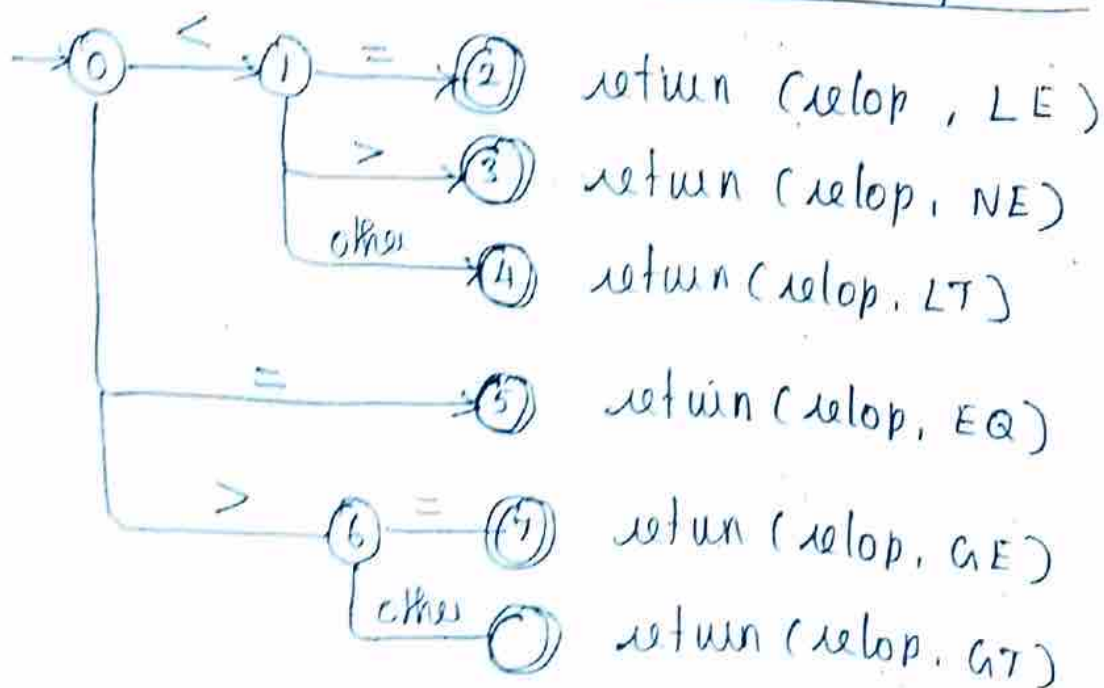 0 < 1 = 2 return (relop, LE)
> 3 return (relop, NE)
other 4 return (relop, LT)
= 5 return (relop, EQ)
> 6 = 7 return (relop, GE)
other return (relop, GT)